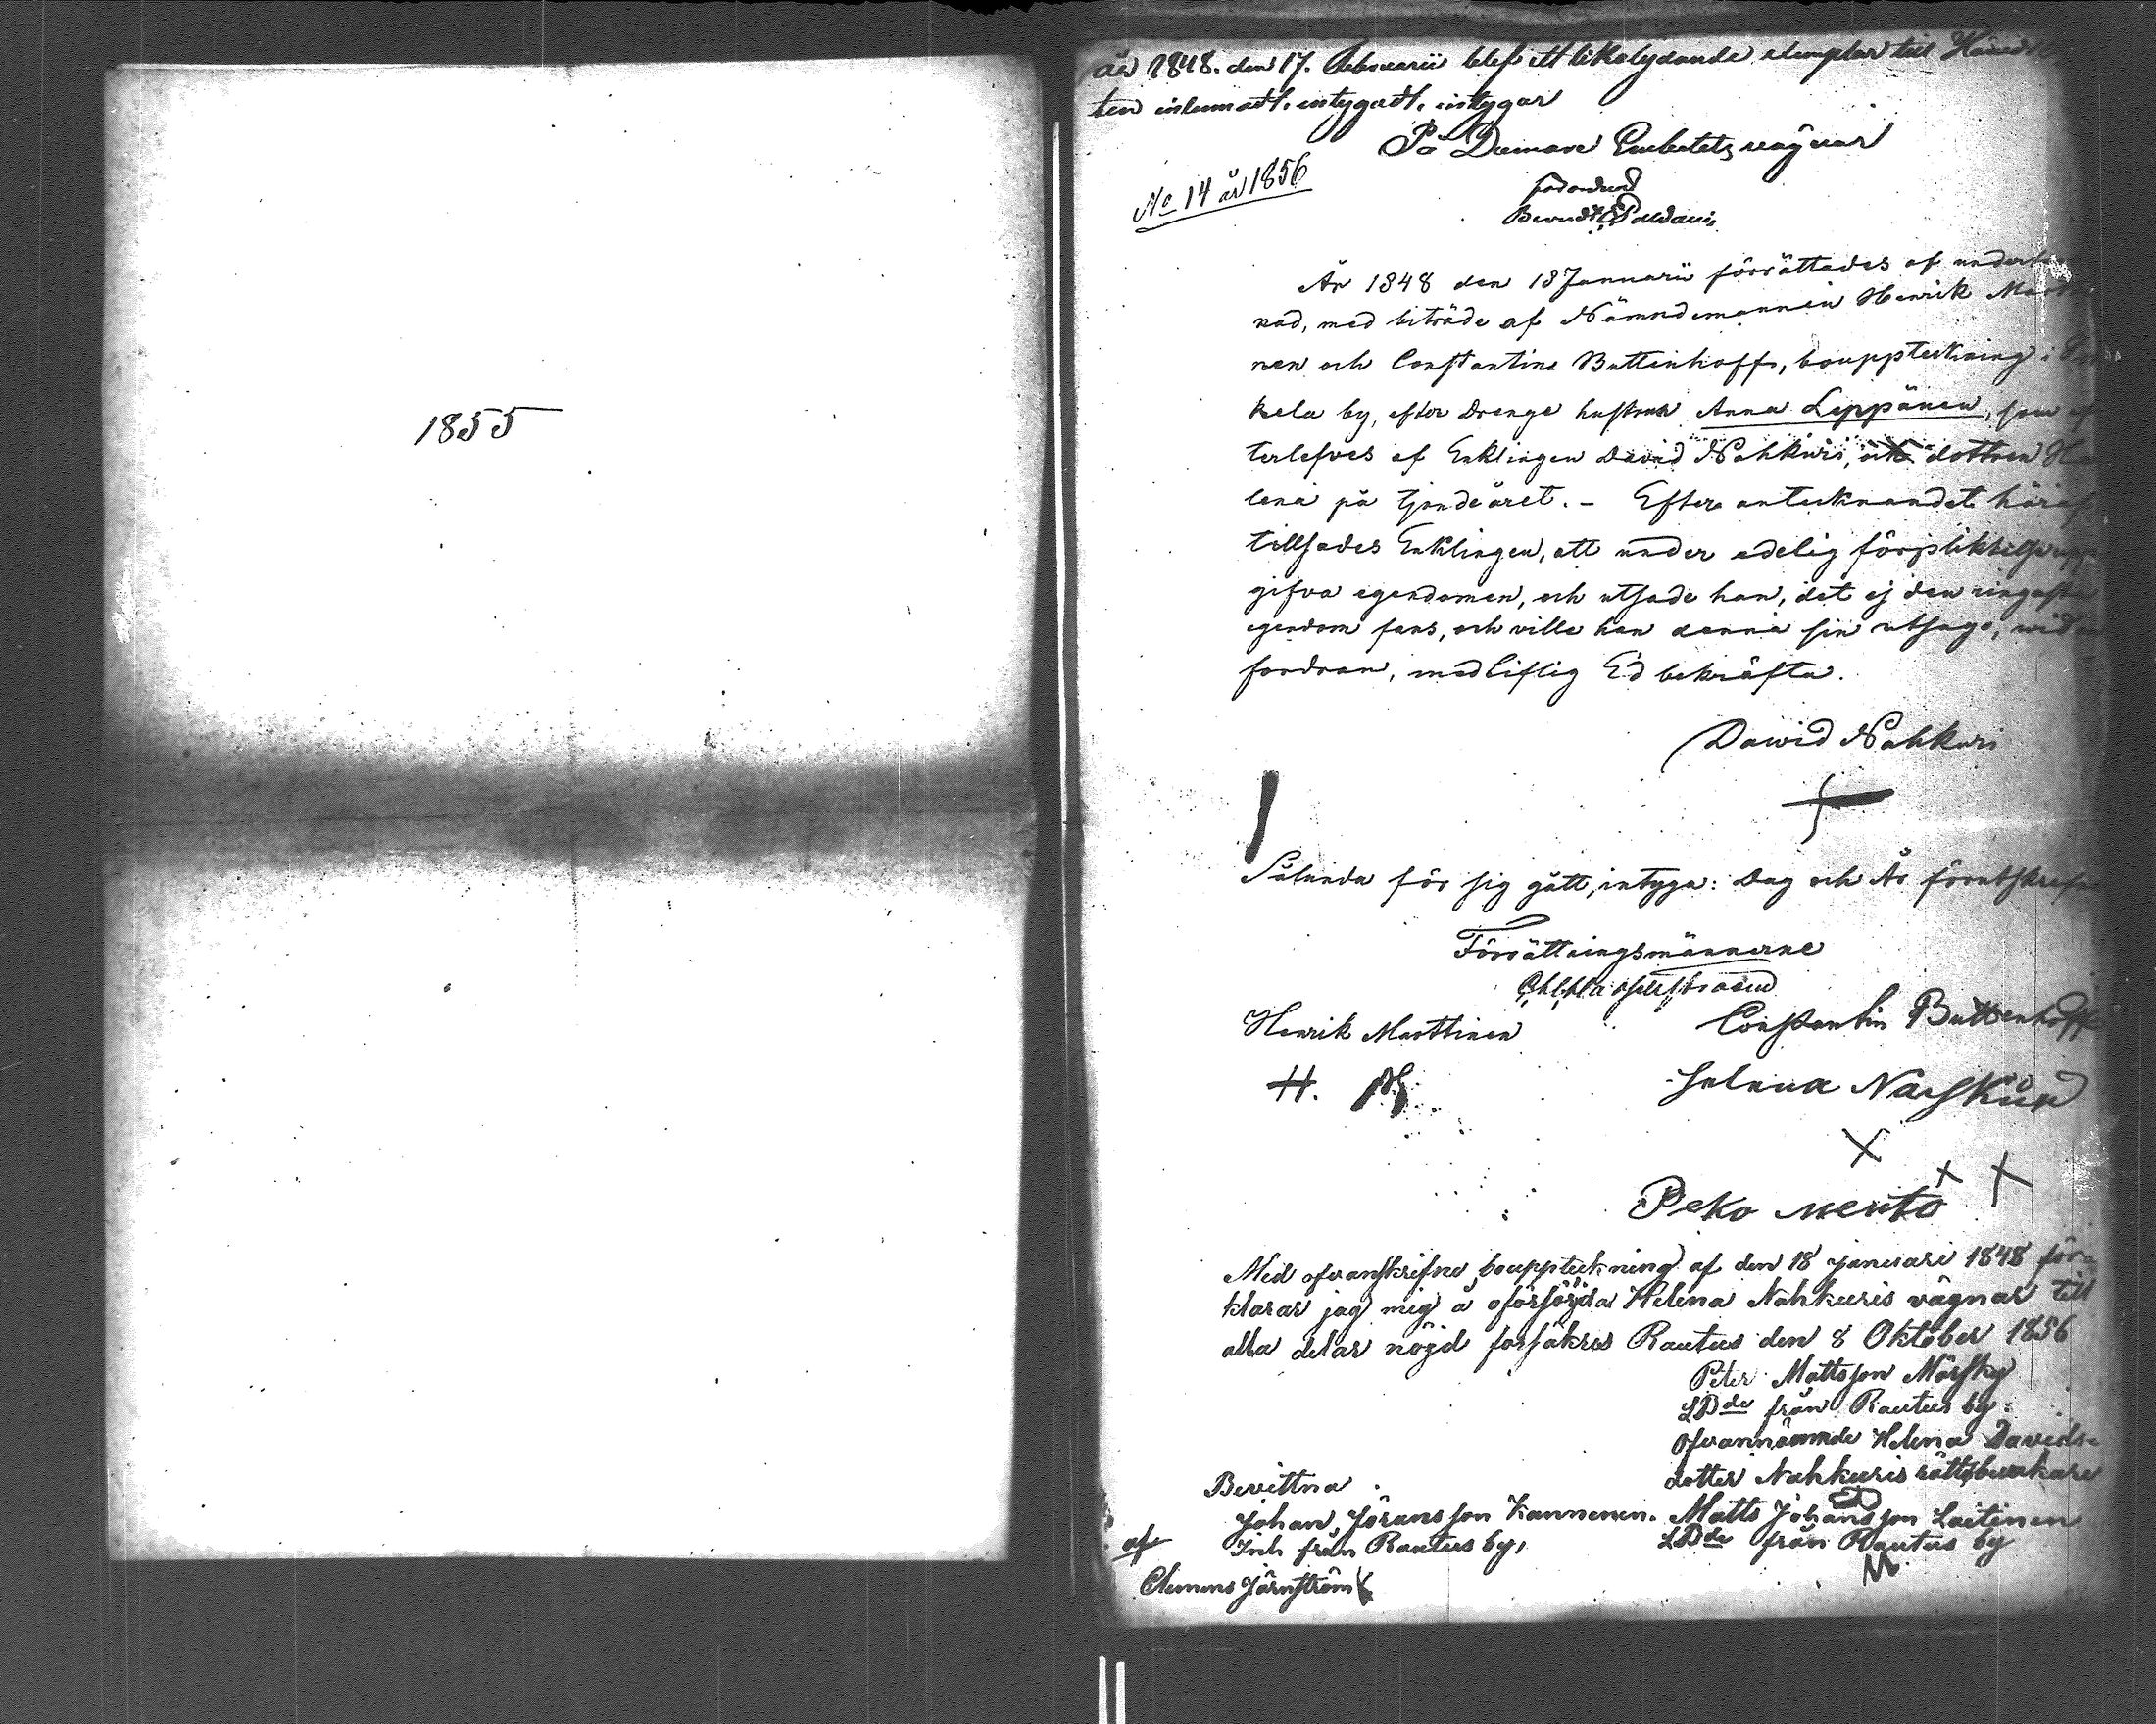 1855
år 1848. den 17. Februarii blef ett likalydande exemplar till Härads
ten inlemnadt. intygadt. intygar
På Domare Embetets vägnar
No 14 år 1856
År 1848 den 18 Januarii förrättades af underteck
nad, med biträde af Nämndemannen Henrik Martti
nen och Constantin Buttenhoff, bouppteckning i
kela by, efter Drenge hustrun Anna Leppänen, som ef
terlefves af Enklingen David Nahkuri, och dottren He
lena på tjonde året. - Efter antecknandet häraf
tillsades Enklingen, att under edelig förpliktelse upp
gifva egendomen, och utsade han, det ej den ringaste
egendom fans, och ville han denna sin utsago, wid an
fordran, med liflig Ed bekräfta.
Dawid Nahkuri
Sålunda för sig gått, intyga: Dag och År förutskrefne
Förrättningsmännerne
Henrik Marttinen Constantin Buttenhoff
H. M Helena Nachkur
X
Peko merito
Med ofvanskrifne bouppteckning af den 18 januari 1848 för
klarar jag mig å oförsörjda Helena Nahkuris vägnar till
alla delar nöjd försäkras Rautus den 8 Oktober 1856
Peter Mattsson Mörsky
LBde från Rautus by
ofvannämnde Helena Davids
dotter Nahkuris rättsbevakare
Bevittna
Johan Jöransson Kannenen. Matts Johansson Laitinen
Inh från Rautus by, LBde från Rautus by
af
Clemens Järnström